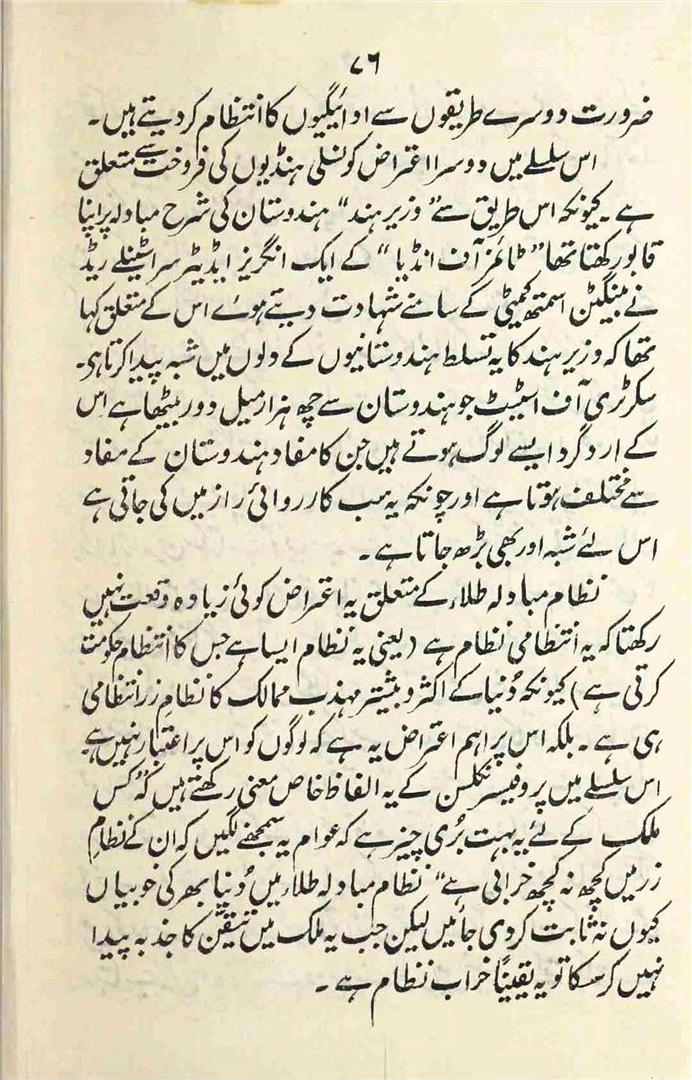 ۷۶
ضرورت دوسرے طریقوں سے ادائیگیوں کا انتظام کر دیتے ہیں۔
اس سلسلے میں دوسرا اعتراض کونسلی ہنڈیوں کی فروخت سے متعلق
ہے۔ کیونکہ اس طریق سے "وزیر ہند" ہندوستان کی شرح مبادلہ پر اپنا
قابو رکھتا تھا "ٹائمز آف انڈیا" کے ایک انگریز ایڈیٹر سر اسٹینلے ریڈ
نے بینگٹن اسمتھ کمیٹی کے سامنے شہادت دیتے ہوئے اس کے متعلق کہا
تھا کہ وزیر ہند کا یہ تسلط ہندوستانیوں کے دلوں میں شبہ پیدا کرتا ہی۔
سکرٹری آف اسٹیٹ جو ہندوستان سے چھ ہزار میل دور بیٹھا ہے اس
کے ارد گرد ایسے لوگ ہوتے ہیں جن کا مفاد ہندوستان کے مفاد
سے مختلف ہوتا ہے اور چونکہ یہ سب کارروائی راز میں کی جاتی ہے
اس لئے شبہ اور بھی بڑھ جاتا ہے۔
نظام مبادلہ طلاء کے متعلق یہ اعتراض کوئی زیادہ وقعت نہیں
رکھتا کہ یہ انتظامی نظام ہے (یعنی یہ نظام ایسا ہے جس کا انتظام حکومت
کرتی ہے) کیونکہ دُنیا کے اکثر و بیشتر مہذب ممالک کا نظامِ زر انتظامی
ہی ہے۔ بلکہ اس پر اہم اعتراض یہ ہے کہ لوگوں کو اس پر اعتبار نہیں ہے
اس سلسلے میں پروفیسر نکلسن کے یہ الفاظ خاص معنی رکھتے ہیں کہ "کس
ملک کے لئے یہ بہت بُری چیز ہے کہ عوام یہ سمجھنے لگیں کہ ان کے نظامِ
زر میں کچھ نہ کچھ خرابی ہے" نظام مبادلہ طلاء میں دُنیا بھر کی خوبیاں
کیوں نہ ثابت کر دی جائیں لیکن جب یہ ملک میں تیقّن کا جذبہ پیدا
نہیں کر سکا تو یہ یقیناً خراب نظام ہے۔